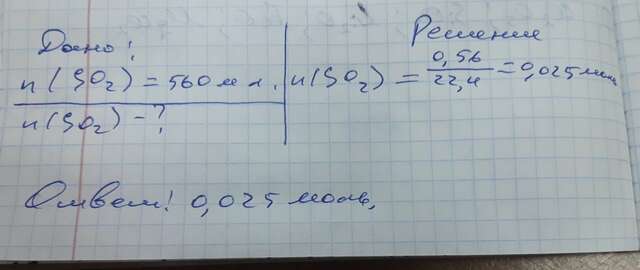 Дано:
n(SO₂) = 560 мл.
n(SO₂) - ?
Решение
n(SO₂) = 0,56/22,4 = 0,025 моль
Ответ: 0,025 моль.